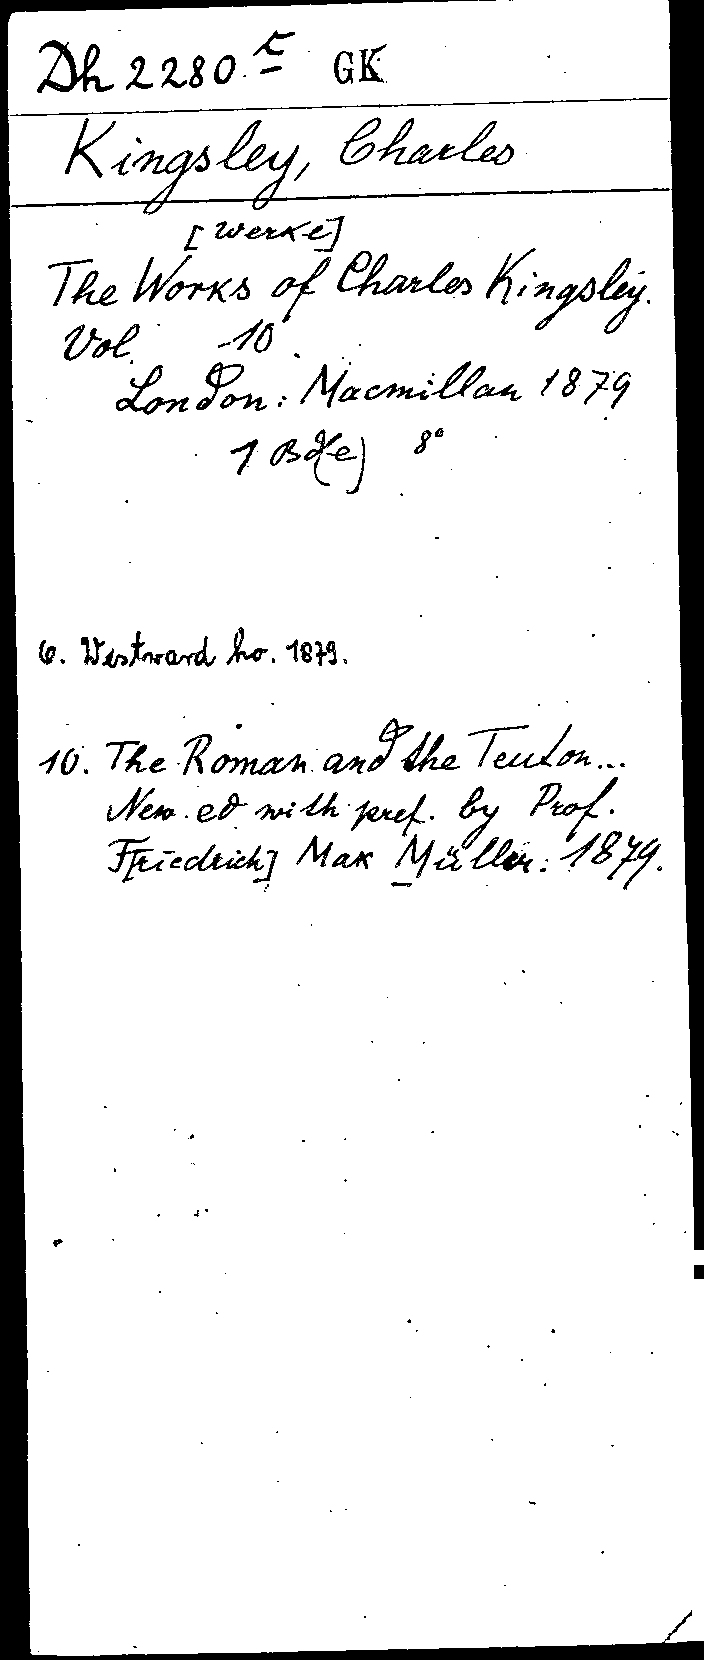 Dh 2280 c GK
Kingsley, Charles
[Werke]
The Works of Charles Kingsley.
Vol. -10.
London: Macmillan 1879
1 Bd(e) 8°
6. Westward ho. 1879.
10. The Roman and the Teuton...
New ed with pref. by Prof.
F[riedrich] Max Müller. 1879.